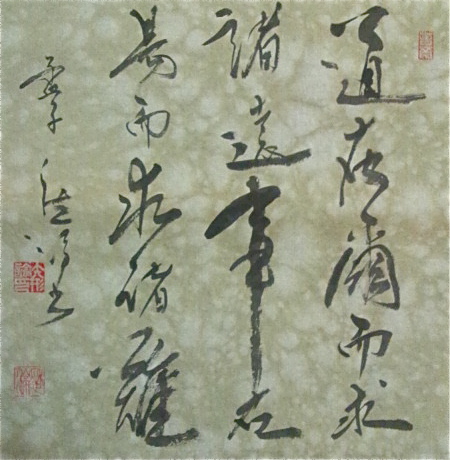 道在爾而求
諸遠事在
易而求諸難
孟子